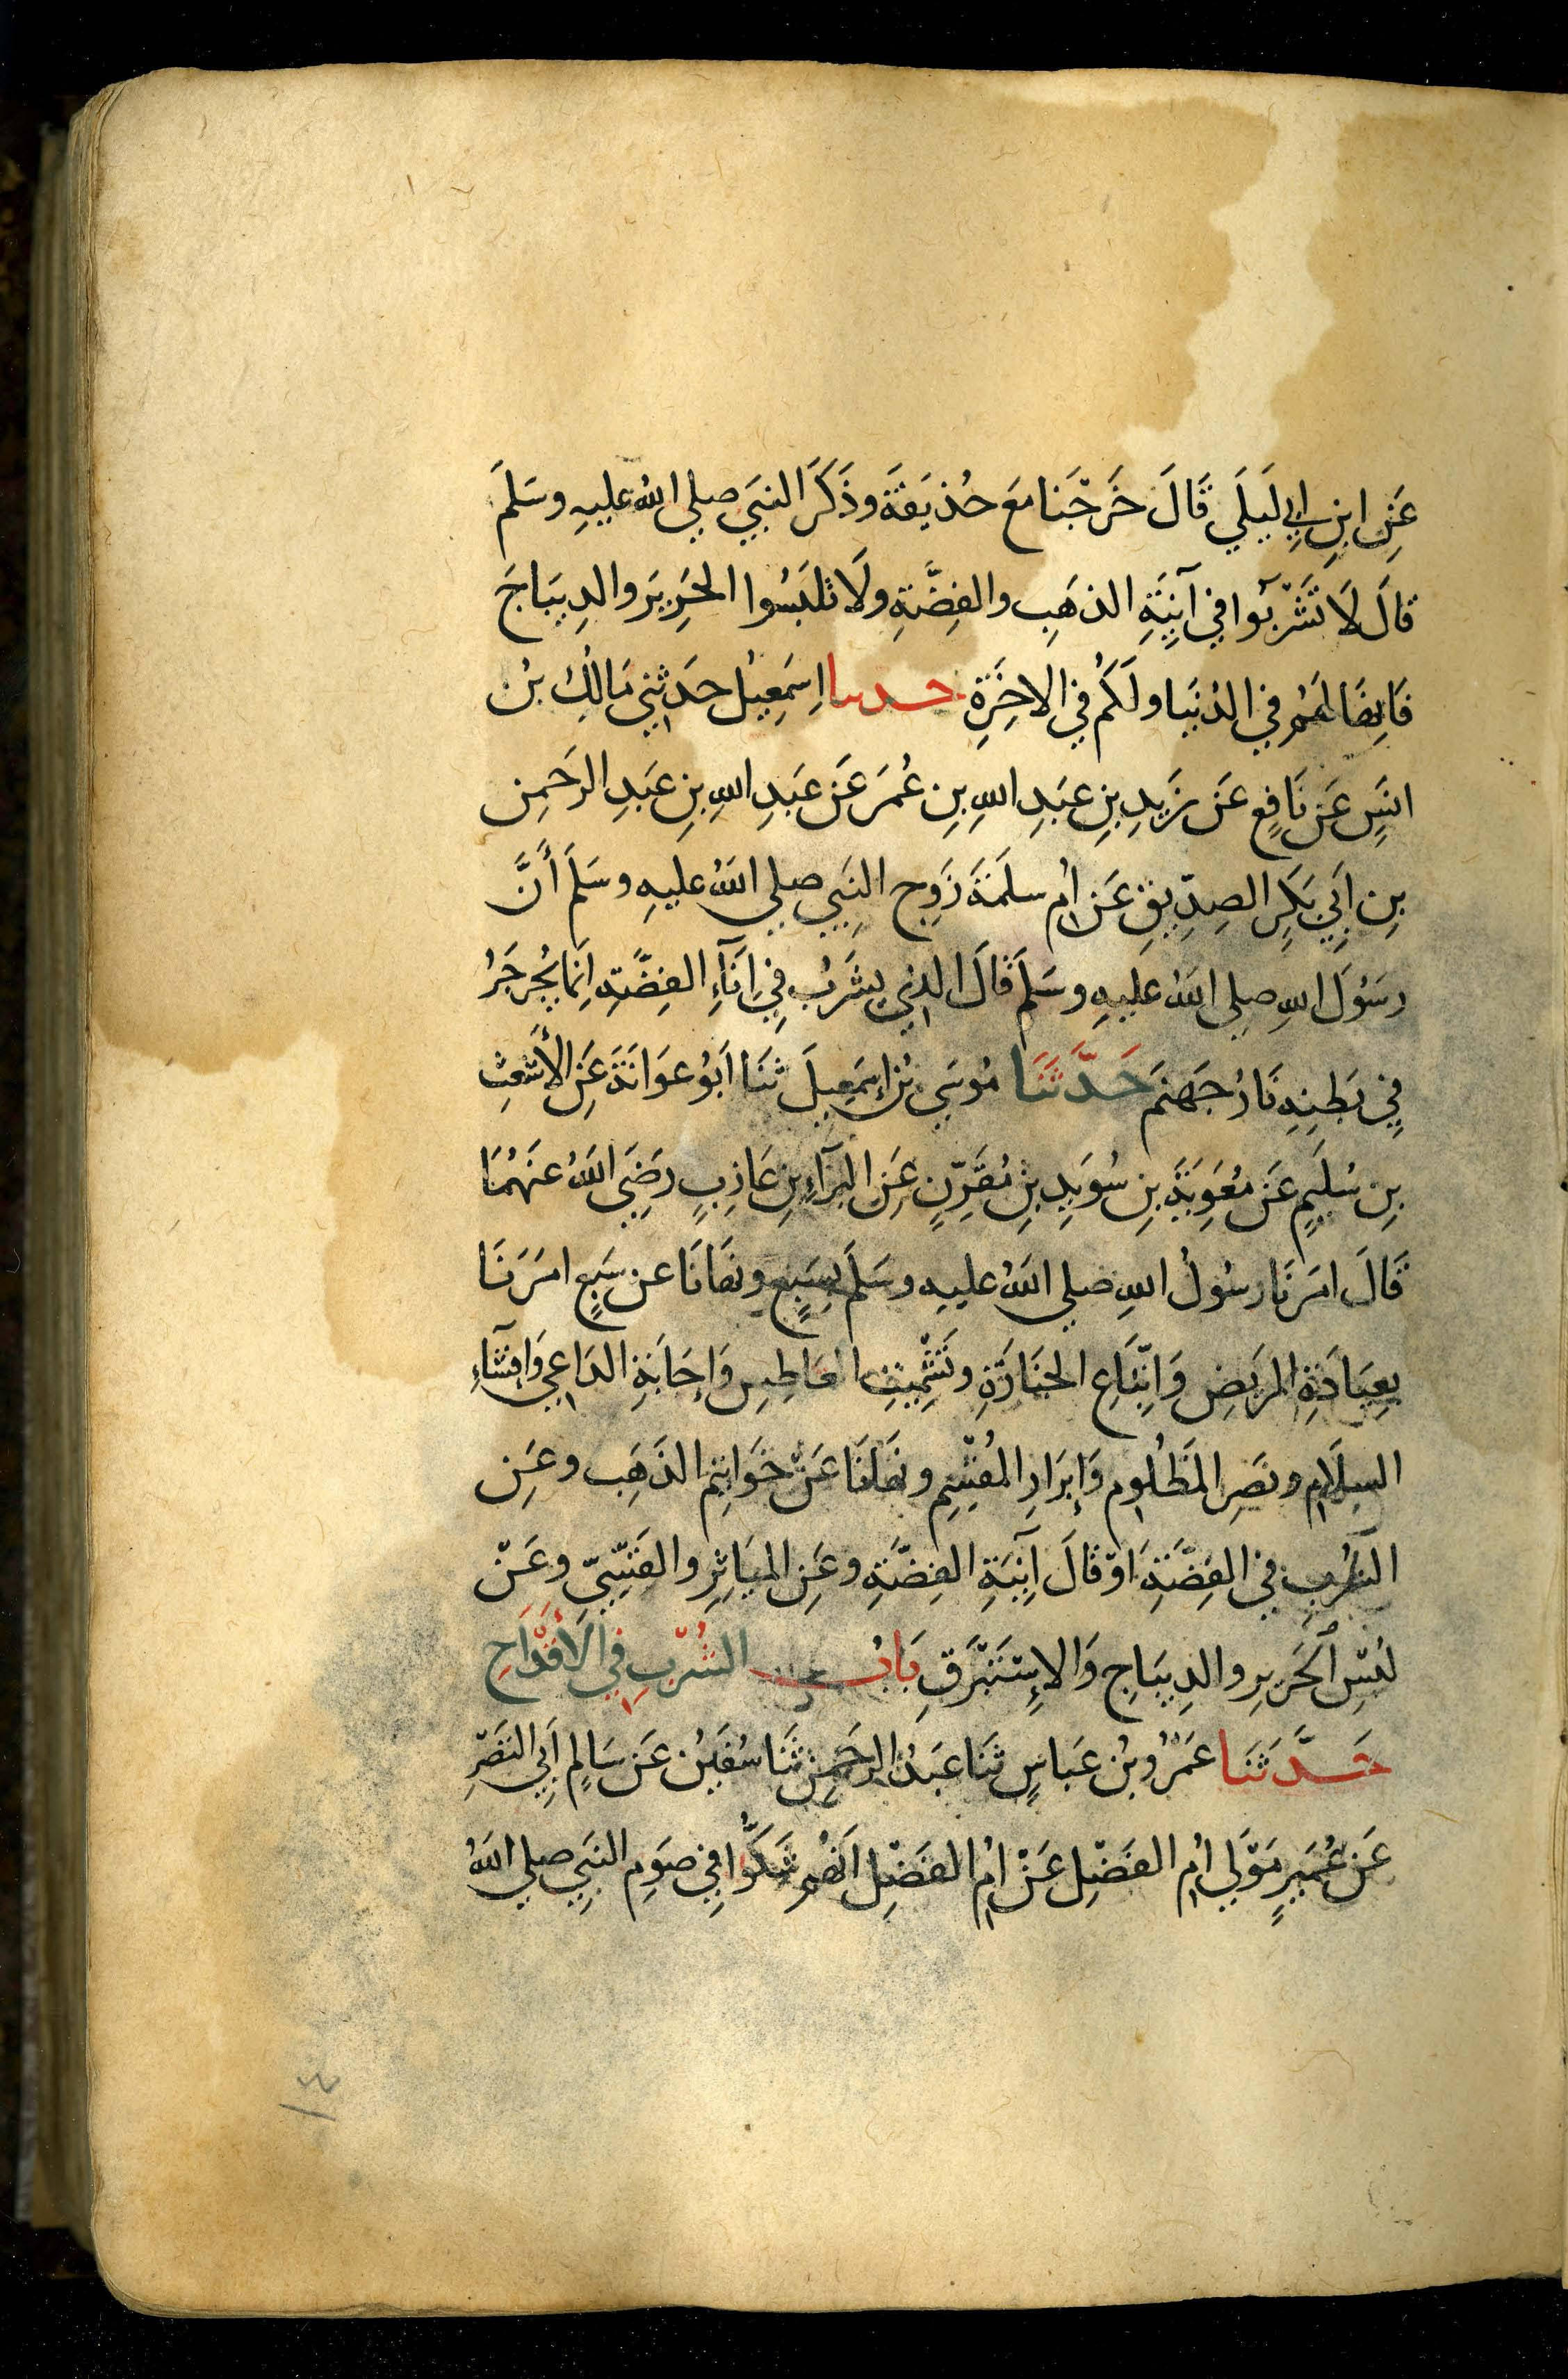 عَنِ ابنِ ابِي لَيلَي قَالَ خَرَجْنَا مَعَ حُذَيفَةَ وذَكَرَ النبيَ صلي اللهُ عليهِ وسَلمَ
قالَ لَا تَشْرَبُوا في آنِيَةِ الذهَبِ والفِضَّةِ ولَا تلبَسُوا الحَرِيرَ والدِيبَاجَ
فَانهَا لهَمُ في الدُنيَا ولَكُم في الاخِرَةِ حدثنا اِسمَعِيلُ حدَثنِي مَالِكُ بْنُ
انسٍ عَن نَافِعٍ عَن زَيدِ بنِ عبَدِ اللهِ بنِ عُمَرَ عَن عبَدِ اللهِ بنِ عَبدِ الرحَمنِ
بنِ ابَي بَكرِ الصِدِّيقِ عَن امُ سلَمَةَ زَوجِ النبَيِ صلي اللهُ عليهِ وسَلمَ أَنَّ
رسَوُلَ اللهِ صلي اللهُ عَليهِ وسَلمَ قَالَ الذِي يشَرَبُ فِي اِنَآءِ الفِضَّةِ اِنمَا يُجَرجِرُ
فِي بَطنِهِ نَارُ جَهنمَ حَدَّثَنَا مُوسَي بنُ إِسمَعِيلَ ثنَا ابَوُ عوَانَةَ عَنِ الأَشعَثِ
بنِ سُليَمٍ عَن مُعَوِيَةَ بنِ سُوَيدِ بنِ مُقَرِّنٍ عَنِ البَرَآءِ بنِ عَازِبٍ رضَيَ اللهُ عنهَمُا
قَالَ امَرنَا رسُولُ اللهِ صلي اللهُ عليهِ وسَلمَ بِسَبعٍ ونهَانَا عن سَبعٍ امَرَنَا
بِعِيَادَةِ المرَيضِ وَاتِّبَاعِ الجنَازَةِ وتَشْمِيتِ العَاطِسِ وَاجَابَةِ الداَعِي وَافِشَآءِ
السلَامِ ونصَرِ المَظلُومِ وَإبرَارِ المُقسِمِ ونهَانَا عَنْ خَوَاتِمِ الذَهَبِ وعَنِ
الشُربِ في الفِضَّةِ اَوْ قَالَ آنِيَةِ الفِضَّةِ وعَنِ الميَاثِرِ والقَسِّيِّ وعَنْ
لُبسِ الحَريرِ والدِيبَاجِ وَالاِسْتَبْرَقِ بَابُ الشُرْبِ فِي الأَقْدَاحِ
حَدَّثَنَا عَمْرُو بنُ عَبَاسٍ ثنَا عبَدُ الرحَمنِ ثنَا سُفيَنُ عَن سَالِمٍ اَبِي النَضْرِ
عَن عُمَيرٍ مَوْلَي امُ الفَضْلِ عَنْ امُ الفَضْلِ انَهُم شَكُّوا فِي صوَمِ النبَيِ صلي اللهُ
١٤